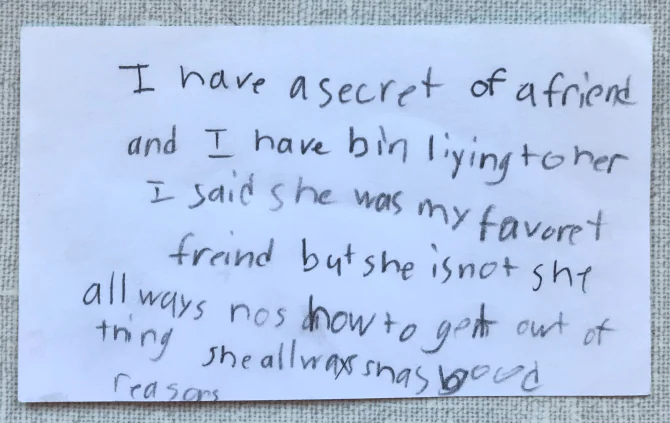 I have a secret of a friend
and I have bin liying to her
I said she was my favoret
freind but she is not she
all ways nos how to gett out of
thing she allways has good
reasons